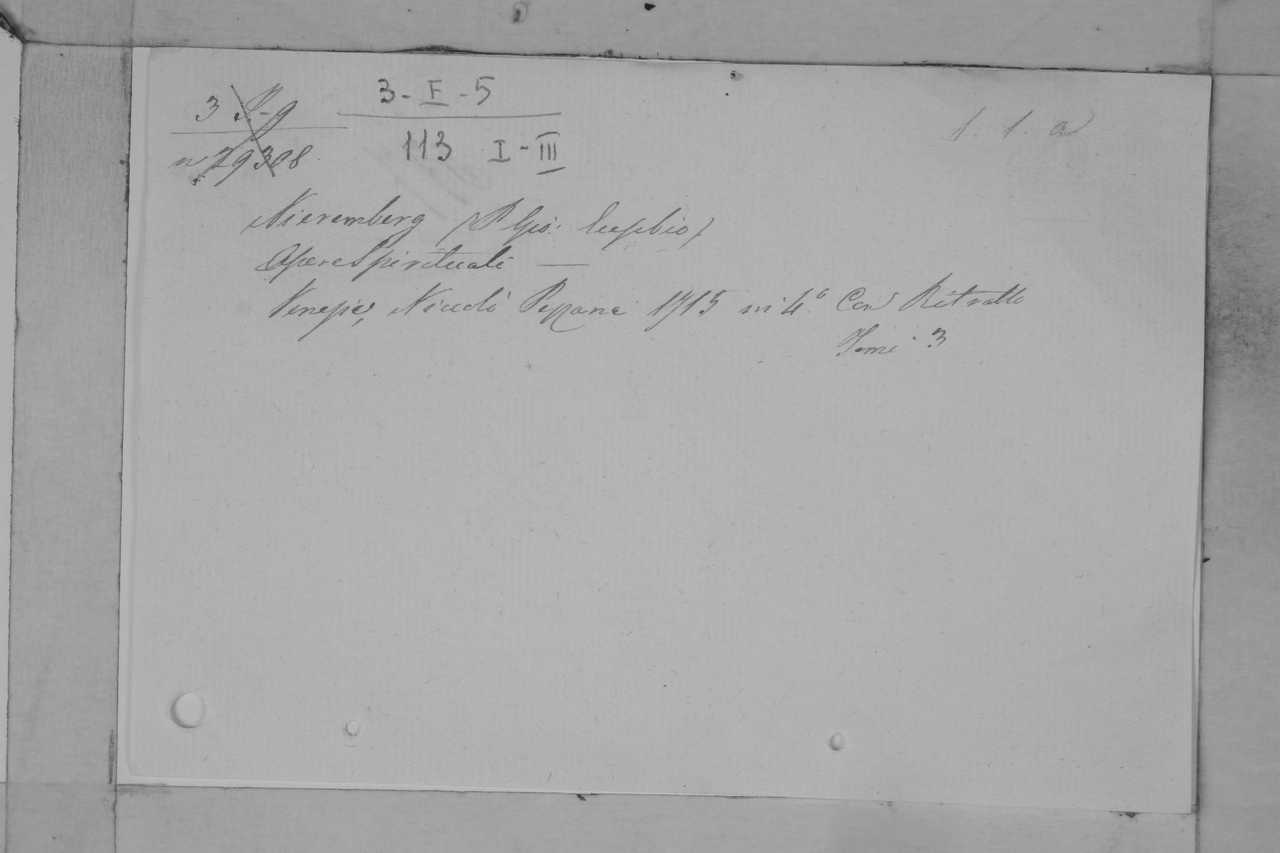 3 P-9
3-F-5
1. 1. a
nº 29308
113 I-III
Nieremberg (P. Gio: Eusebio)
Opere Spirituali —
Venezia, Nicolò Pezzana 1715 in 4º Con Ritratto
Tomi 3